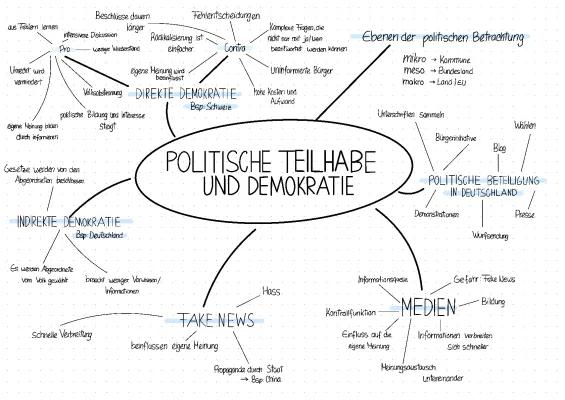 Beschlüsse dauern
länger
Fehlentscheidungen
Komplexe Fragen, die
nicht nur mit ja/nein
beantwortet werden können
aus Fehlern lernen
intensivere Diskussion
Radikalisierung ist
einfacher
Pro
weniger Widerstand
Contra
Unrecht wird
vermindert
eigene Meinung wird
beeinflusst
Uninformierte Bürger
Volksabstimmung
DIREKTE DEMOKRATIE
Bsp: Schweiz
hohe Kosten und
Aufwand
eigene Meinung bilden
durch informieren
politische Bildung und Interesse
steigt
Ebenen der politischen Betrachtung
mikro → Kommune
meso → Bundesland
makro → Land | EU
POLITISCHE TEILHABE
UND DEMOKRATIE
Unterschriften sammeln
Wählen
Bürgerinitiative
Blog
POLITISCHE BETEILIGUNG
IN DEUTSCHLAND
Demonstrationen
Presse
Wurfsendung
Gesetze werden von den
Abgeordneten beschlossen
INDIREKTE DEMOKRATIE
Bsp: Deutschland
Es werden Abgeordnete
vom Volk gewählt
braucht weniger Vorwissen/
Informationen
Hass
FAKE NEWS
schnelle Verbreitung
beinflussen eigene Meinung
Propaganda durch Staat
→ Bsp China
Informationsquelle
Gefahr: Fake News
Kontrollfunktion
MEDIEN
Bildung
Einfluss auf die
eigene Meinung
Informationen verbreiten
sich schneller
Meinungsaustausch
untereinander